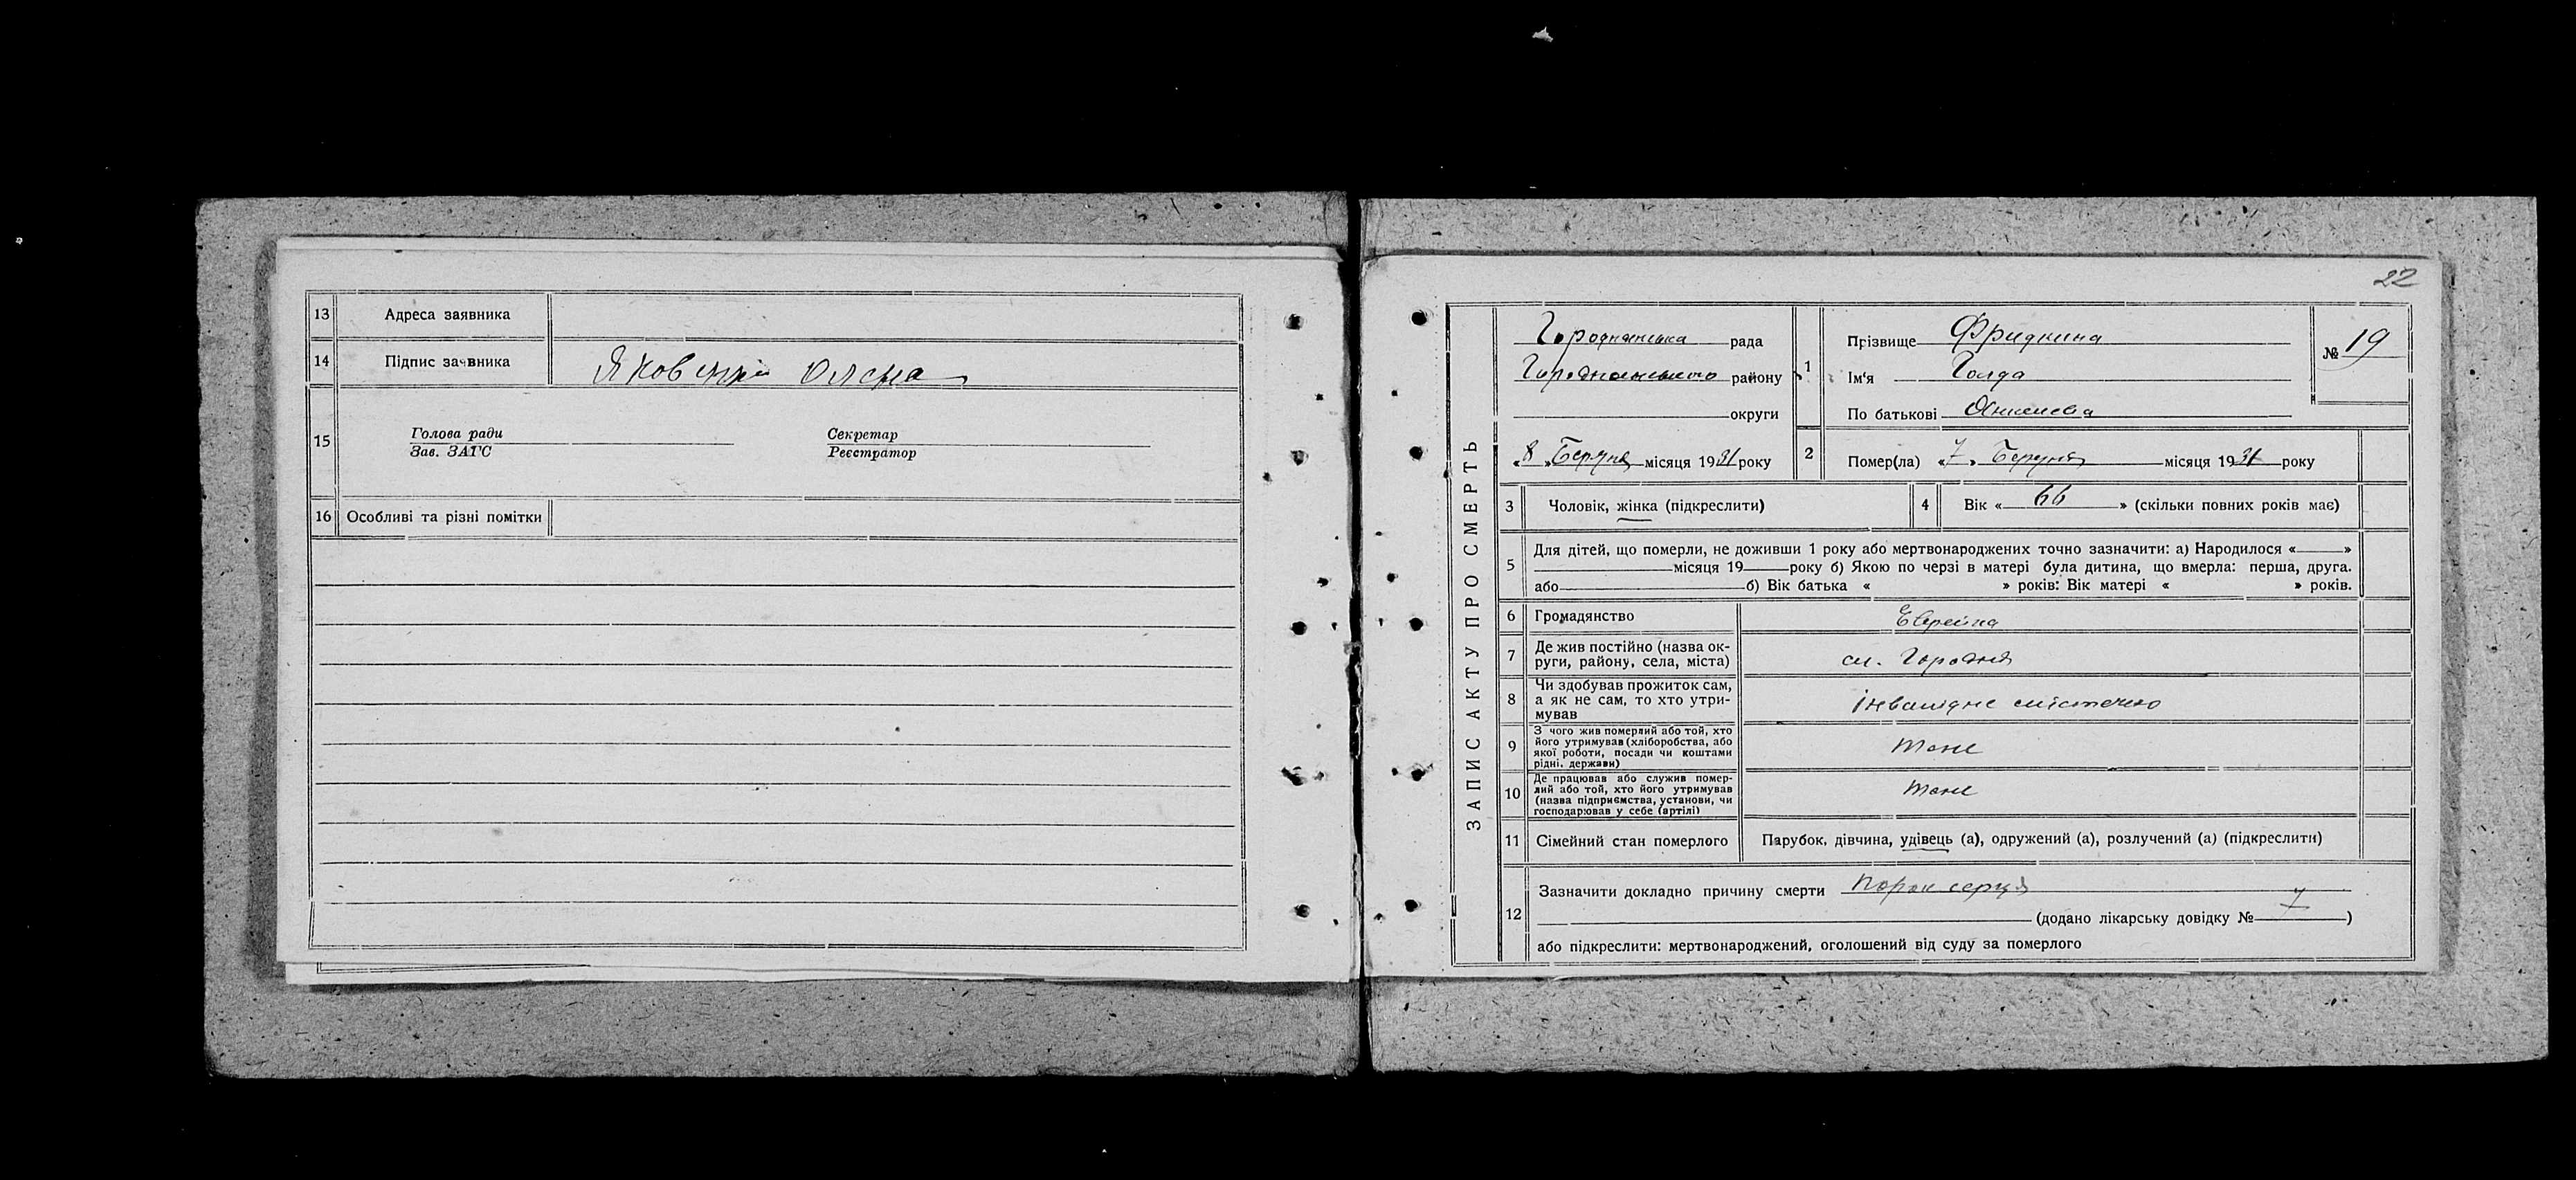 13 Адреса заявника
14 Підпис заявника Яковенко Олена
15 Голова ради Секретар
Зав. ЗАГС Реєстратор
16 Особливі та різні помітки
22
ЗАПИС АКТУ ПРО СМЕРТЬ
Городнянська рада
Городнянського району
округи
«8» Березня місяця 1931 року
1 Прізвище Фридкина
Ім'я Голда
По батькові
№ 19
2 Помер(ла) «7» Березня місяця 1931 року
3 Чоловік, жінка (підкреслити)
4 Вік «66» (скільки повних років має)
5 Для дітей, що померли, не доживши 1 року або мертвонароджених точно зазначити: а) Народилося « »
місяця 19 року б) Якою по черзі в матері була дитина, що вмерла: перша, друга.
або б) Вік батька « » років: Вік матері « » років.
6 Громадянство Еврейка
7 Де жив постійно (назва ок-
руги, району, села, міста) см. Городня
8 Чи здобував прожиток сам,
а як не сам, то хто утри-
мував
9 З чого жив померлий або той, хто
його утримував (хліборобства, або
якої роботи, посади чи коштами
рідні, держави)
10 Де працював або служив помер-
лий або той, хто його утримував
(назва підприємства, установи, чи
господарював у себе (артілі)
11 Сімейний стан померлого Парубок, дівчина, удівець (а), одружений (а), розлучений (а) (підкреслити)
12 Зазначити докладно причину смерти Порок серця
(додано лікарську довідку № 7)
або підкреслити: мертвонароджений, оголошений від суду за померлого